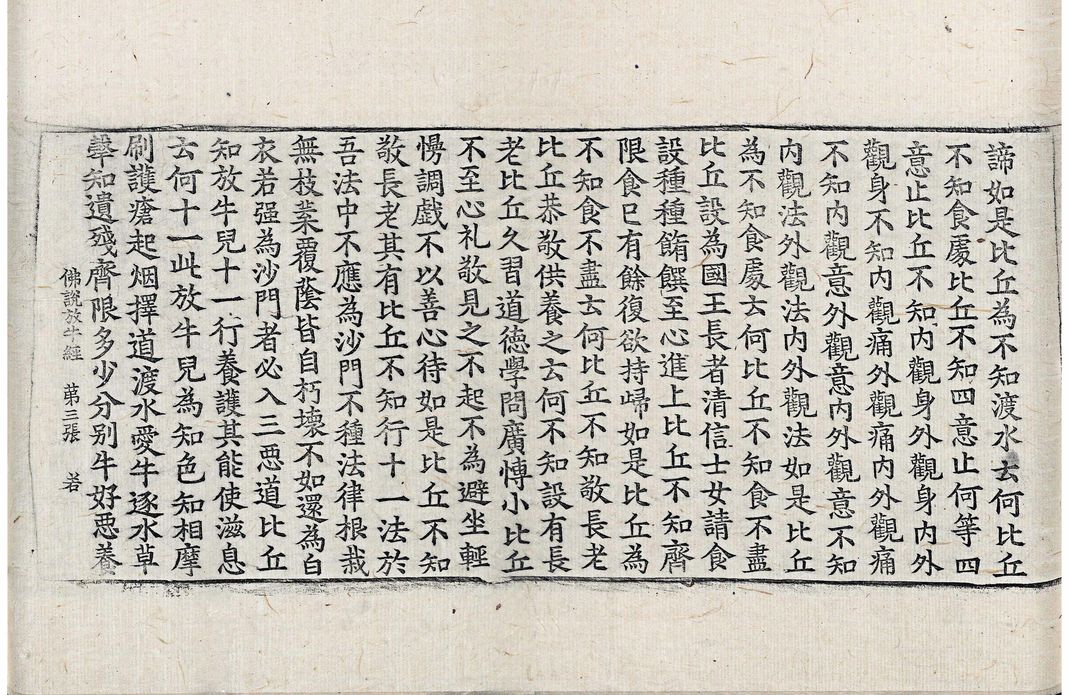 諦如是比丘為不知渡水云何比丘
不知食處比丘不知四意止何等四
意止比丘不知內觀身外觀身內外
觀身不知內觀痛外觀痛內外觀痛
不知內觀意外觀意內外觀意不知
內觀法外觀法內外觀法如是比丘
為不知食處云何比丘不知食不盡
比丘設為國王長者清信士女請食
設種種餚饌至心進上比丘不知齊
限食已有餘復欲持歸如是比丘為
不知食不盡云何比丘不知敬長老
比丘恭敬供養之云何不知設有長
老比丘久習道德學問廣博小比丘
不至心礼敬見之不起不為避坐輕
慢調戲不以善心待如是比丘不知
敬長老其有比丘不知行十一法於
吾法中不應為沙門不種法律根栽
無枝葉覆蔭皆自朽壞不如還為白
衣若强為沙門者必入三惡道比丘
知放牛兒十一行養護其能使滋息
云何十一此放牛兒為知色知相摩
刷護瘡起烟擇道渡水愛牛逐水草
𤛓知遺殘齊限多少分别牛好惡養
佛說放牛經 第三張 若